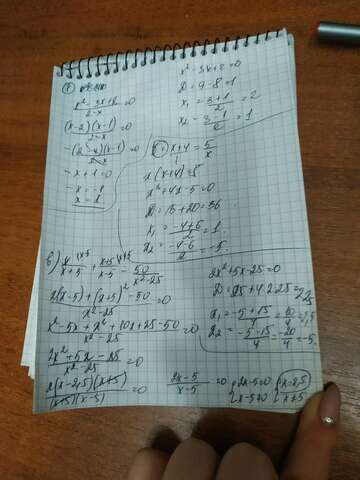 x² - 3x + 2 = 0
D = 9 - 8 = 1
x₁ = (3+1)/2 = 2
x₂ = (3-1)/2 = 1
(x² - 3x + 2)/(2-x) = 0
((x-2)(x-1))/(2-x) = 0
-x + 1 = 0
-x = -1
x = 1
x + 4 = 5/x
x(x+4) = 5
x² + 4x - 5 = 0
D = 16 + 20 = 36
x₁ = (-4+6)/2 = 1
x₂ = (-4-6)/2 = -5
в) x/(x+5) + (x+5)/(x-5) - 50/(x²-25)
(x(x-5) + (x+5)² - 50)/(x²-25) = 0
(x² - 5x + x² + 10x + 25 - 50)/(x²-25) = 0
(2x² + 5x - 25)/(x²-25) = 0
(2(x-2,5)(x+5))/((x+5)(x-5)) = 0
2x² + 5x - 25 = 0
D = 25 + 4·2·25 = 225
x₁ = (-5+15)/4 = 10/4 = 2,5
x₂ = (-5-15)/4 = -20/4 = -5
(2x-5)/(x-5) = 0
{2x-5=0 {x=2,5
{x-5≠0 {x≠5